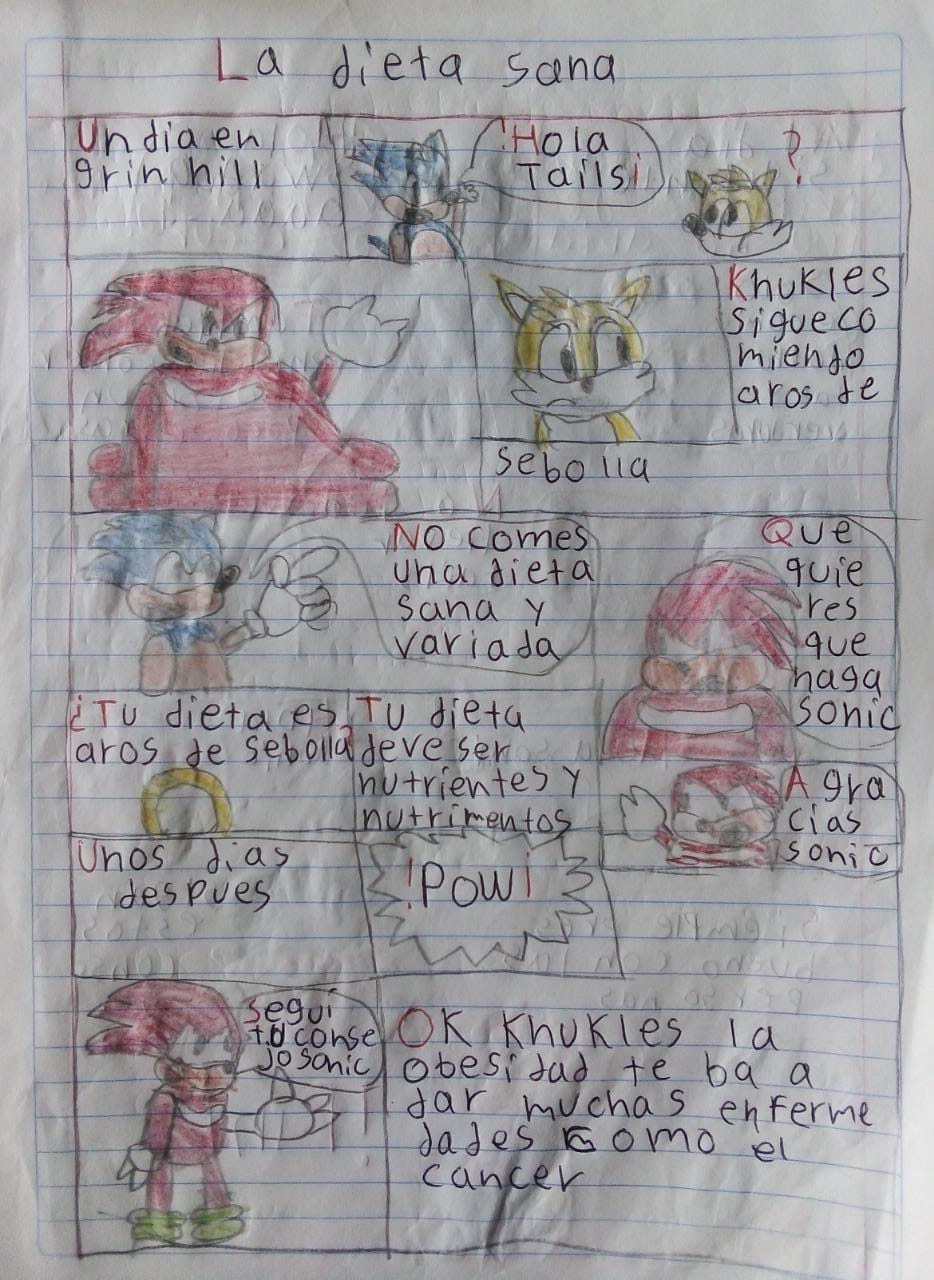 La dieta sana
Un dia en
grin hill
¡Hola
Tails!
?
Khukles
sigue co
miendo
aros de
sebolla
No comes
una dieta
sana y
variada
Que
quie
res
que
haga
sonic
¿Tu dieta es
aros de sebolla
Tu dieta
deve ser
nutrientes y
nutrimentos
A gra
cias
sonic
Unos dias
despues
¡Pow!
segui
tu conse
jo sonic
OK Khukles la
obesidad te ba a
dar muchas enferme
dades como el
cancer